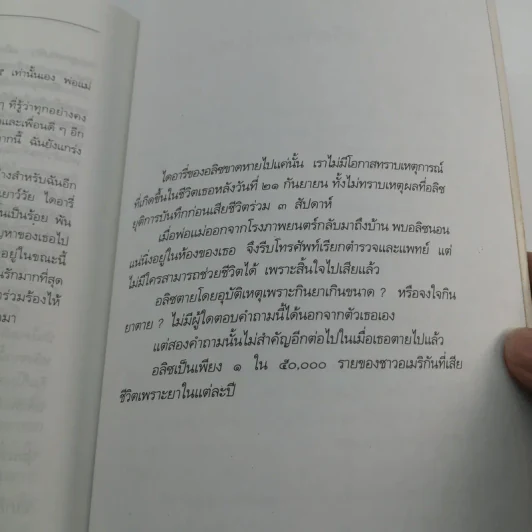 ร เท่านั้นเอง พ่อแม่
ๆ ที่รู้ว่าทุกอย่างคง
และเพื่อนดี ๆ อีก
ากนี้ ฉันยังแกร่ง
างสำหรับฉันอีก
ยาว์วัย ไดอารี่
เป็นร้อย พัน
ญหาของเธอไป
อยู่ในขณะนี้
นรักมากที่สุด
ร่วมร้องไห้
มา
ไดอารี่ของอลิซขาดหายไปแค่นั้น เราไม่มีโอกาสทราบเหตุการณ์
ที่เกิดขึ้นในชีวิตเธอหลังวันที่ ๒๑ กันยายน ทั้งไม่ทราบเหตุผลที่อลิซ
ยุติการบันทึกก่อนเสียชีวิตร่วม ๓ สัปดาห์
เมื่อพ่อแม่ออกจากโรงภาพยนตร์กลับมาถึงบ้าน พบอลิซนอน
แน่นิ่งอยู่ในห้องของเธอ จึงรีบโทรศัพท์เรียกตำรวจและแพทย์ แต่
ไม่มีใครสามารถช่วยชีวิตได้ เพราะสิ้นใจไปเสียแล้ว
อลิซตายโดยอุบัติเหตุเพราะกินยาเกินขนาด ? หรือจงใจกิน
ยาตาย ? ไม่มีผู้ใดตอบคำถามนี้ได้นอกจากตัวเธอเอง
แต่สองคำถามนั้นไม่สำคัญอีกต่อไปในเมื่อเธอตายไปแล้ว
อลิซเป็นเพียง ๑ ใน ๕๐,๐๐๐ รายของชาวอเมริกันที่เสีย
ชีวิตเพราะยาในแต่ละปี